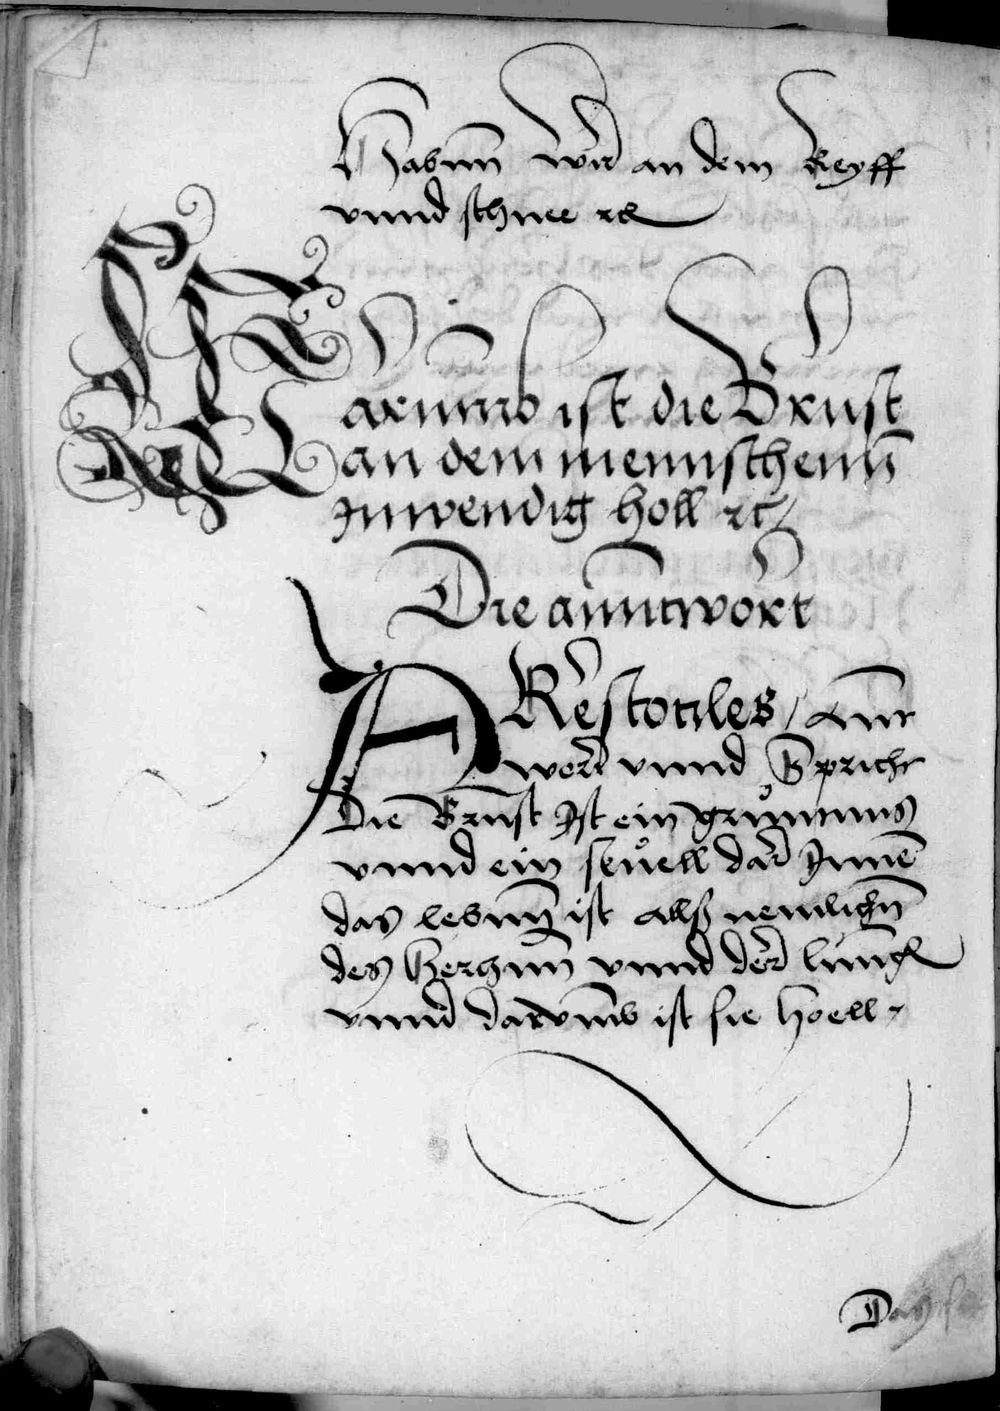 Habnn wir an dem Reyff
vnnd schnee rc
Warumb ist die Brust
an dem mennschenn
Inwendig holl rc
Die anntwort
ARestotiles / Annt
wort vnnd Spricht
Die Brust Ist ein
vnnd ein seüell dar Innē
das lebnn ist allß nemlichn
des Hertznn vnnd der lungl
vnnd darvmb ist sie hoell